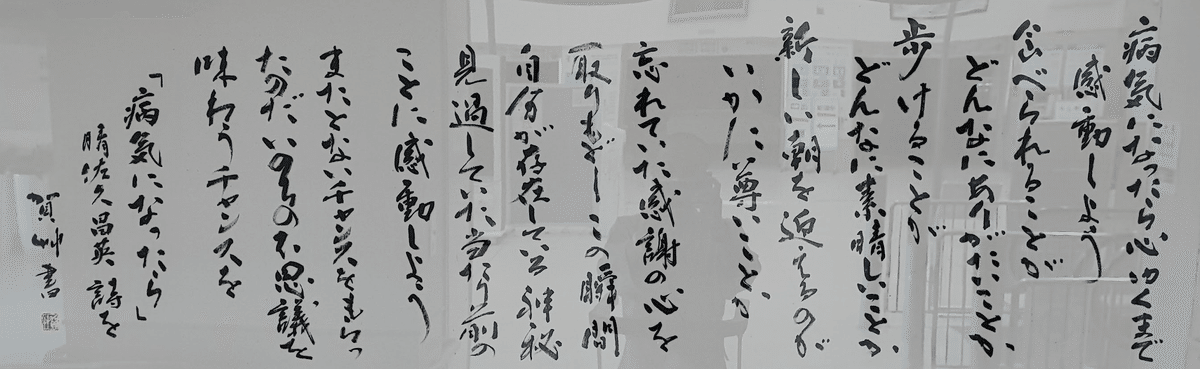 病気になったら心ゆくまで
感動しよう
食べられることが
どんなにありがたいことか
歩けることが
どんなに素晴しいことか
新しい朝を迎えるのが
いかに尊いことか
忘れていた感謝の心を
取りもどしこの瞬間
自分が存在している神秘
見過していた当たり前の
ことに感動しよう
またとないチャンスをもらっ
たのだいのちの不思議を
味わうチャンスを
「病気になったら」
晴佐久昌英 詩を
賀艸書